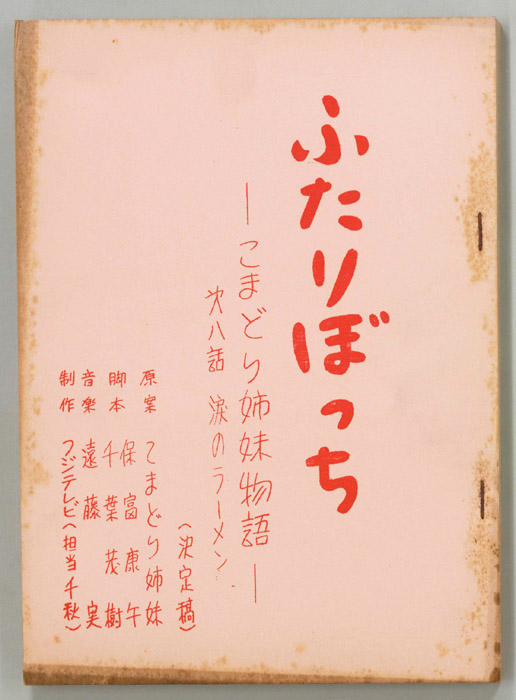 ふたりぼっち
―こまどり姉妹物語―
第八話 涙のラーメン
(決定稿)
原案 こまどり姉妹
脚本 保富康午
千葉茂樹
音楽 遠藤実
制作 フジテレビ(担当千秋)